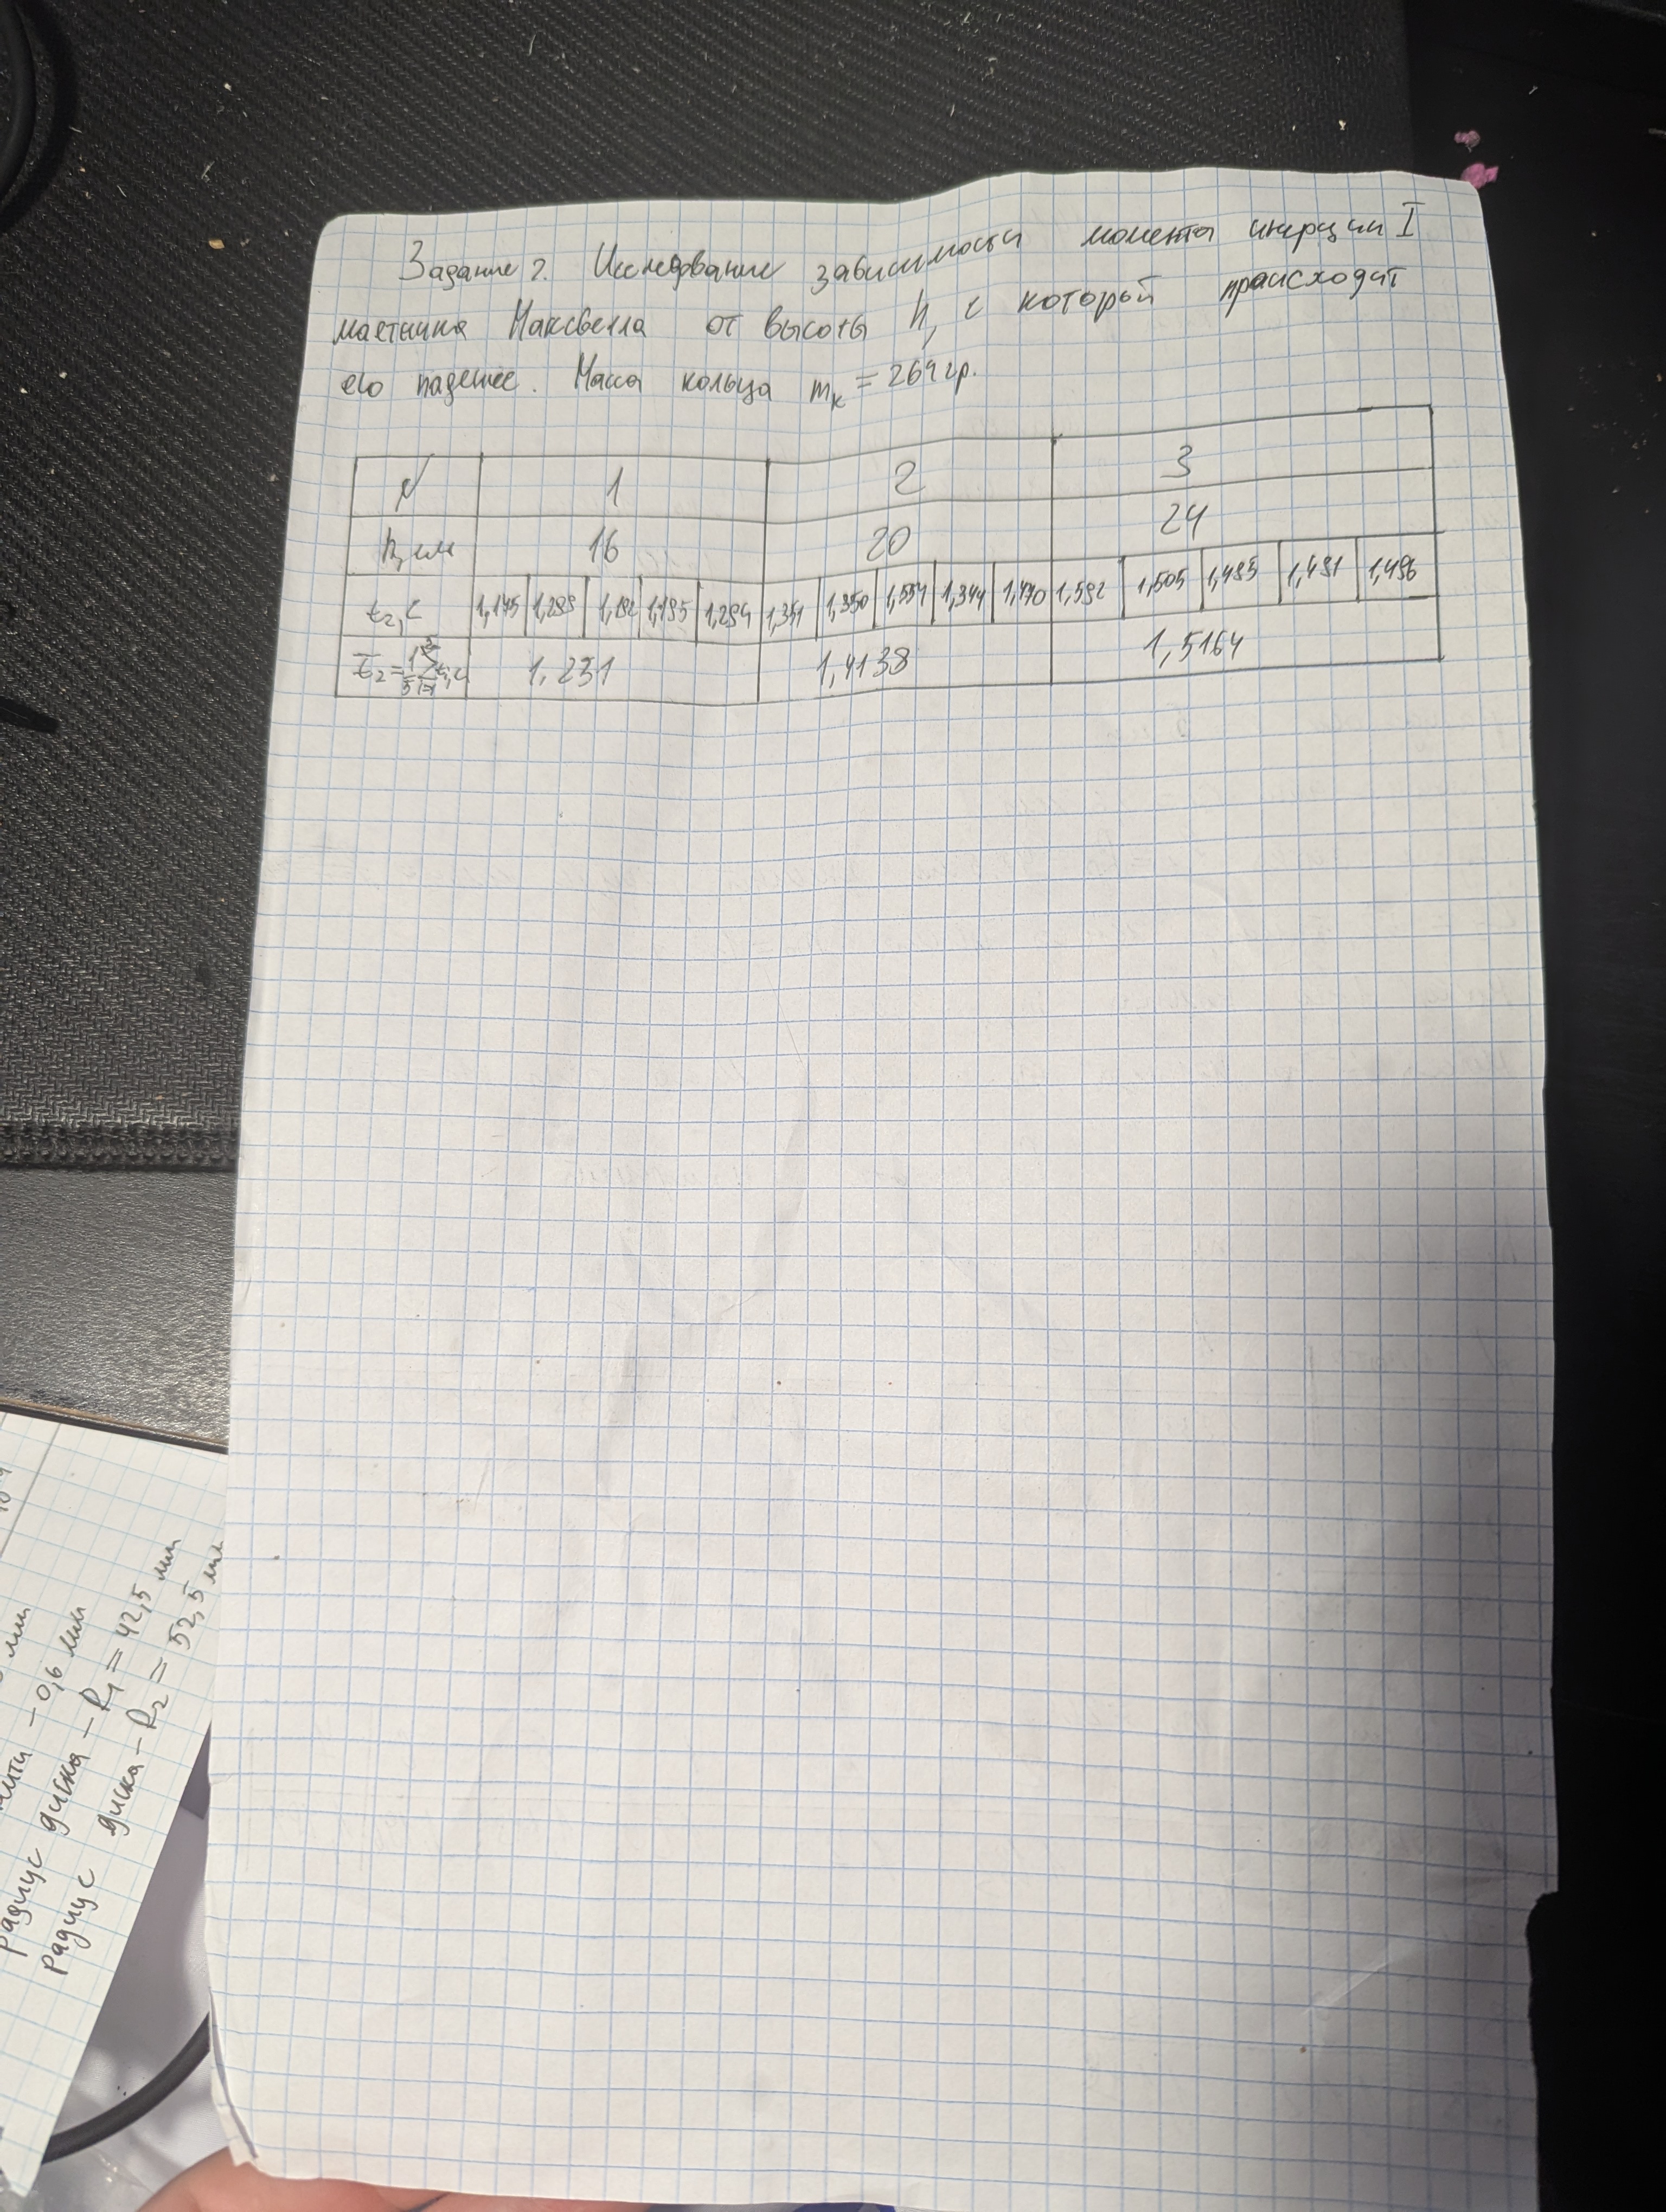 Задание 2. Исследование зависимости момента инерции I
маятника Максвелла от высоты h, с которой происходит
его падение. Масса кольца mк = 264 гр.
№ 1 2 3
h, см 16 20 24
t2, с 1,195 1,289 1,192 1,195 1,284 1,351 1,350 1,554 1,344 1,470 1,592 1,505 1,1,491 1,496
t̅2 = 1/5 Σ ti, с 1,231 1,4138 1,5164
мм
нити – 0,6 мм
радиус диска – R1 = 42,5 мм
радиус диска – R2 = 52,5 мм